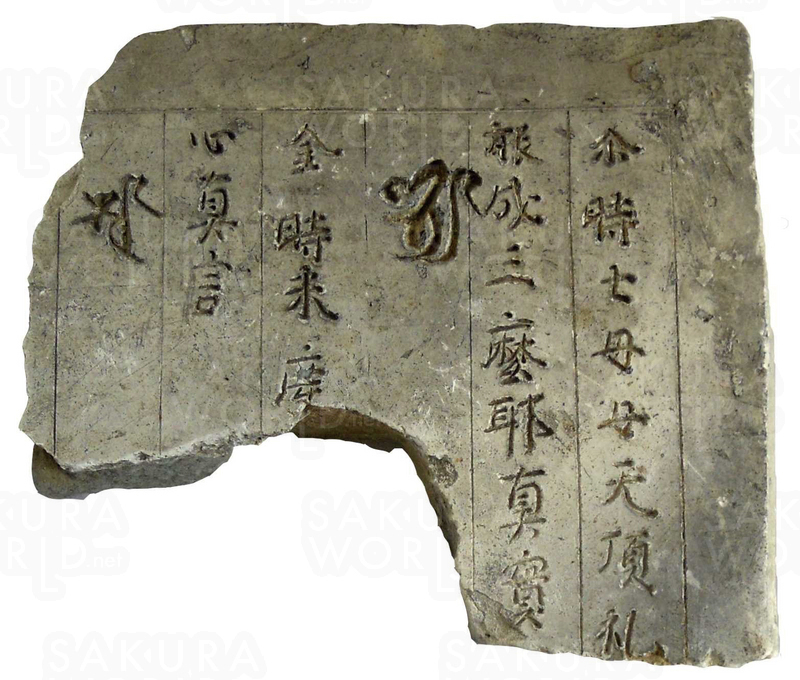 尒時七母女天頂礼
能成三麼耶真實
尒時末度
心真言
SAKURA
WORLD.net